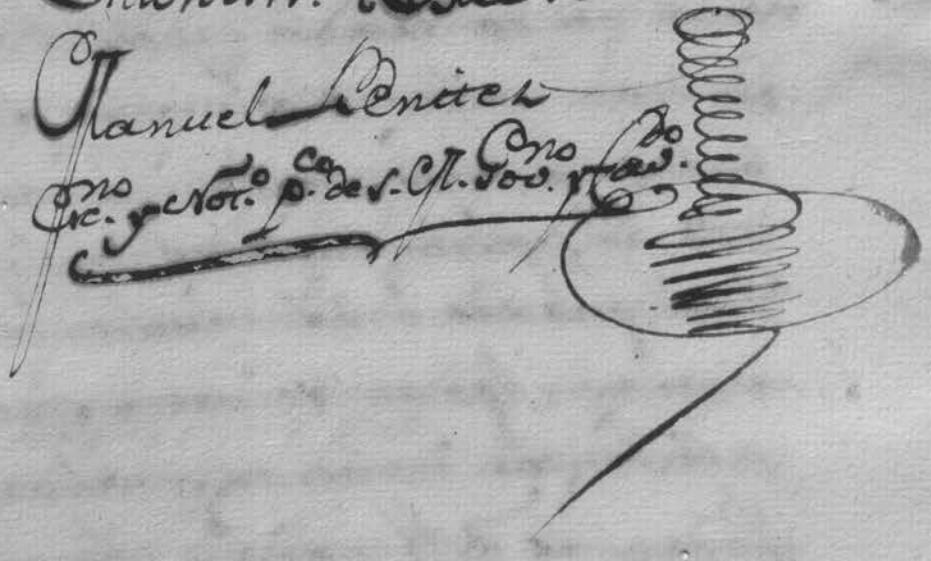 Manuel Benitez
Esc.no y Not.o p.co de S. M. Gov.no y Cav.do